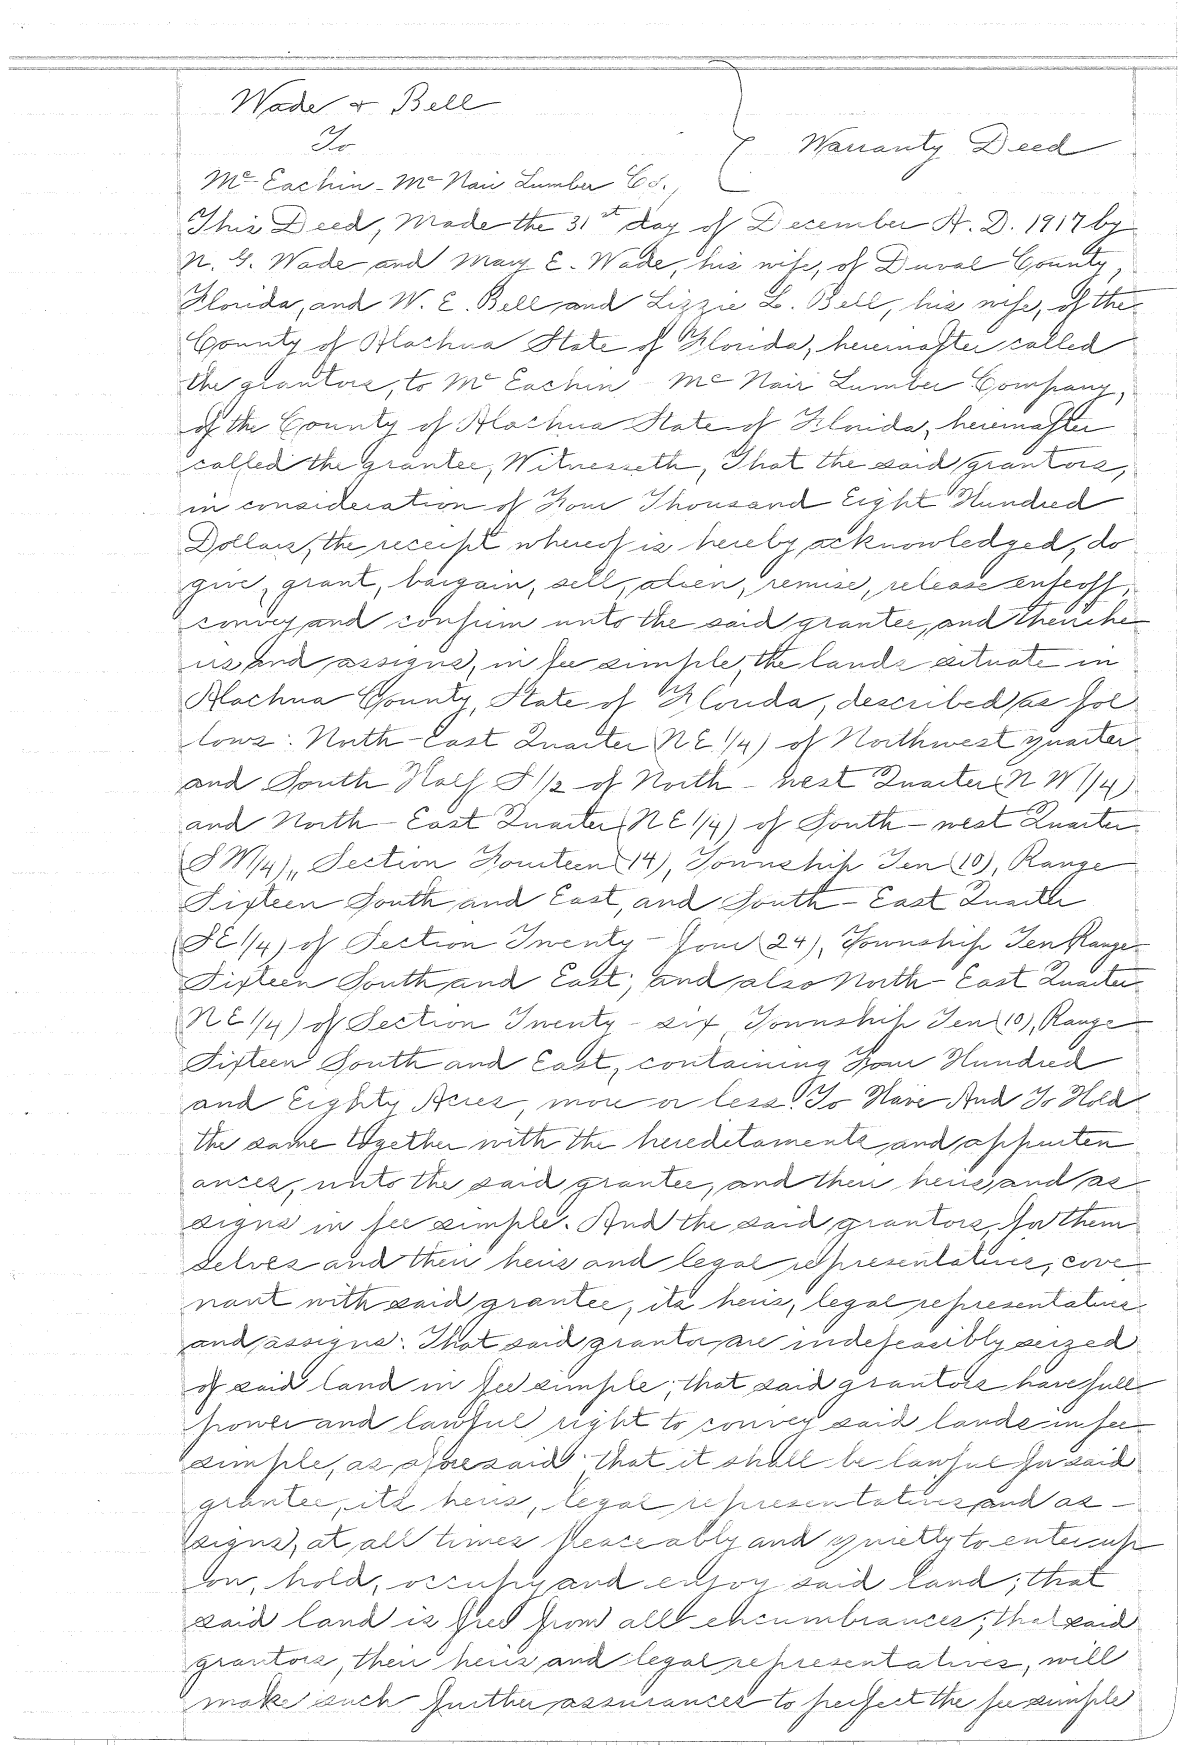 Wade & Bell
To
Warranty Deed
Mc Eachin - Mc Nair Lumber Co.,
This Deed, Made the 31st day of December A. D. 1917 by
N. G. Wade and Mary E. Wade, his wife, of Duval County,
Florida, and W. E. Bell and Lizzie L. Bell, his wife, of the
County of Alachua State of Florida, hereinafter called
the grantors, to Mc Eachin Mc Nair Lumber Company,
of the County of Alachua State of Florida, hereinafter
called the grantee, Witnesseth, That the said grantors,
in consideration of Four Thousand Eight Hundred
Dollars, the receipt whereof is hereby acknowledged, do
give, grant, bargain, sell, alien, remise, release enfeoff,
convey and confirm unto the said grantee, and their he
irs and assigns, in fee simple, the lands situate in
Alachua County, State of Florida, described as fol
lows: North-East Quarter (NE 1/4) of Northwest quarter
and South Half S 1/2 of North-west Quarter (N W 1/4)
and North-East Quarter (NE 1/4) of South-west Quarter
(S W 1/4),, Section Fourteen (14), Township Ten (10), Range
Sixteen South and East, and South-East Quarter
(SE 1/4) of Section Twenty-four (24), Township Ten Range
Sixteen South and East; and also North-East Quarter
(NE 1/4) of Section Twenty-six Township Ten (10), Range
Sixteen South and East, containing Four Hundred
and Eighty Acres, more or less. To Have And To Hold
the same together with the hereditaments and appurten
ances, unto the said grantee, and their heirs and as
signs in fee simple. And the said grantors, for them
selves and their heirs and legal representatives, cove
nant with said grantee, its heirs, legal representatives
and assigns: That said grantor are indefeasibly seized
of said land in fee simple; that said grantors have full
power and lawful right to convey said lands in fee
simple, as aforesaid; that it shall be lawful for said
grantee, its heirs, legal representatives and as-
signs, at all times peaceably and quietly to enter up
on, hold, occupy and enjoy said land; that
said land is free from all encumbrances; that said
grantors, their heirs and legal representatives, will
make such further assurances to perfect the fee simple